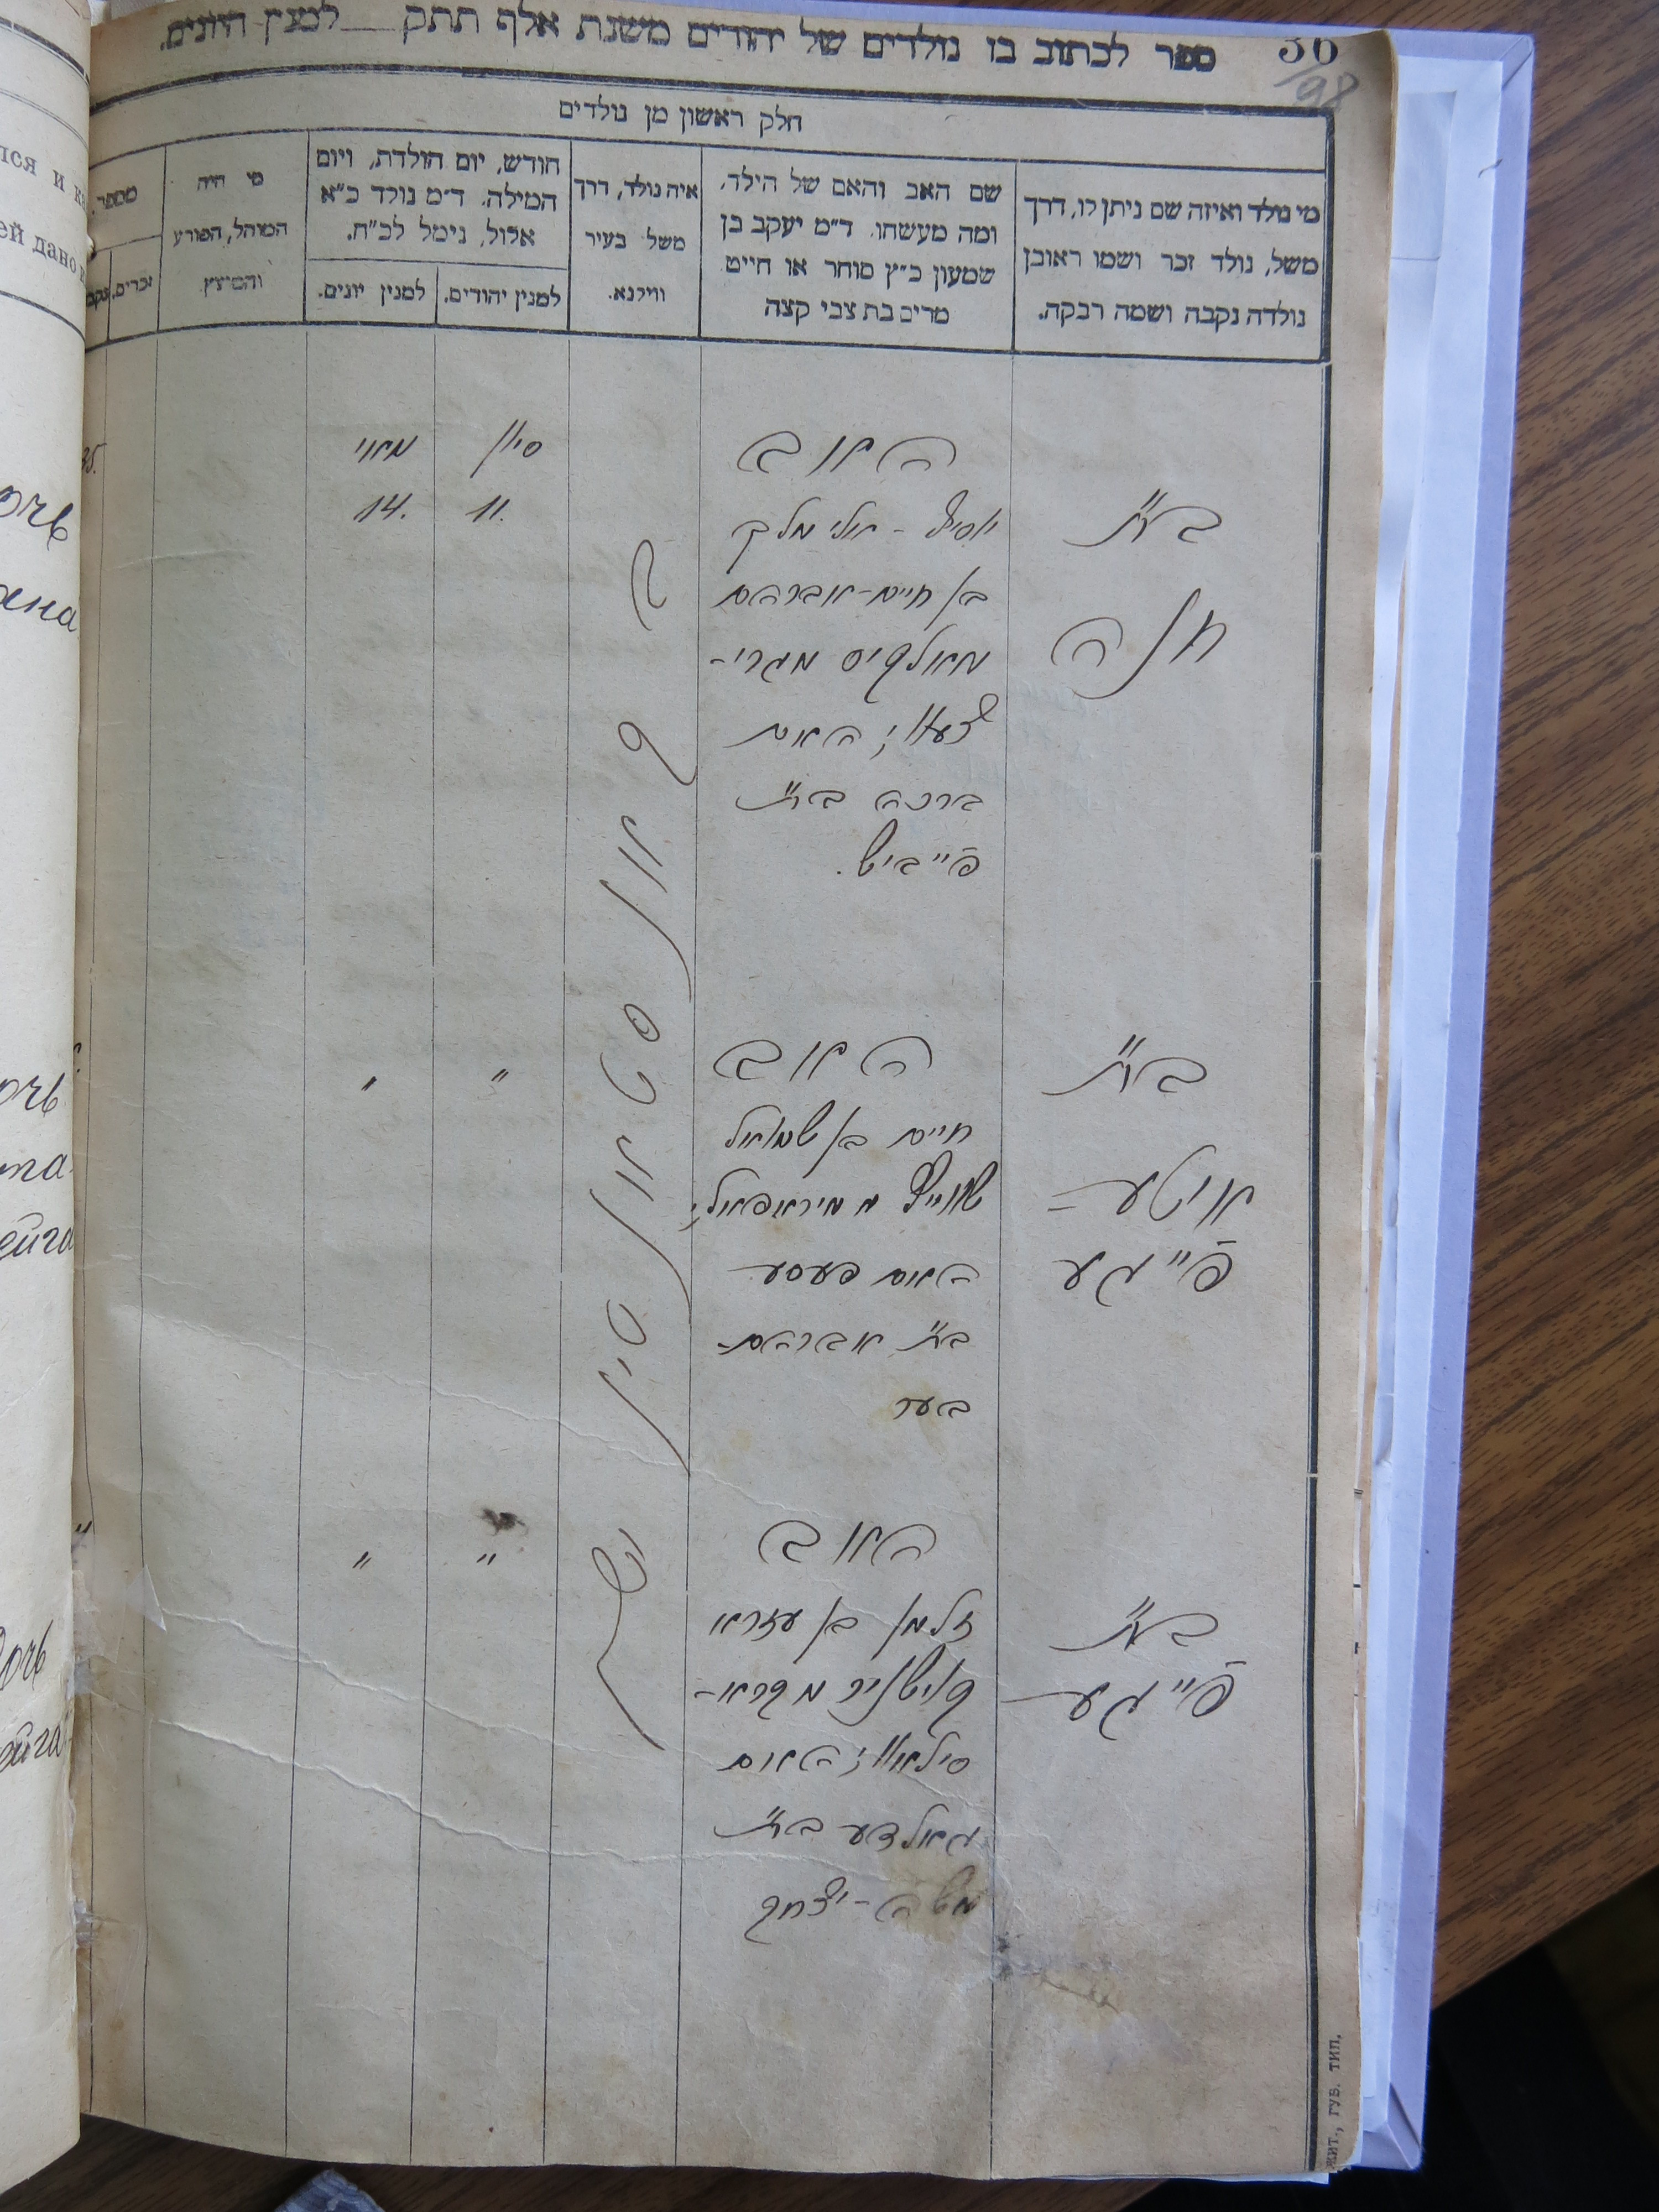 ספר לכתוב בו נולדים של יהודים משנת אלף תתק למנין היונים.
36
98
חלק ראשון מן נולדים
מי נולד ואיזה שם ניתן לו, דרך
משל, נולד זכר ושמו ראובן
נולדה נקבה ושמה רבקה.
שם האב והאם של הילד,
ומה מעשהו. ד״מ יעקב בן
שמעון כ״ץ סוחר או חייט
מרים בת צבי קצה
איה נולד, דרך
משל בעיר
ווילנא.
חודש, יום הולדת, ויום
המילה. ד״מ נולד כ״א
אלול, נימל לכ״ח.
למנין יהודים.
למנין יונים.
מי היה
המוהל, הפורע
והמוצץ
מספר
זכרים.
בת
חנה
האב
יוסף - אלימלך
בן חיים-אברהם
מאלקיס מגרי-
צעוו; האם
ברכה בת
פייביש.
סיון
11.
מאי
14.
קאנסטאנטין
בת
אויטע-
פייגע
האב
חיים בן שמואל
שווייץ ממיראפאל;
האם פעסע
בת אברהם-
בער
"
"
בת
פייגע
האב
זלמן בן עזרא
קושניר מקרא-
סילאוו; האם
גאלדע בת
משה-יצחק
"
"
очь
очь
Дочь
жит., губ. тип.